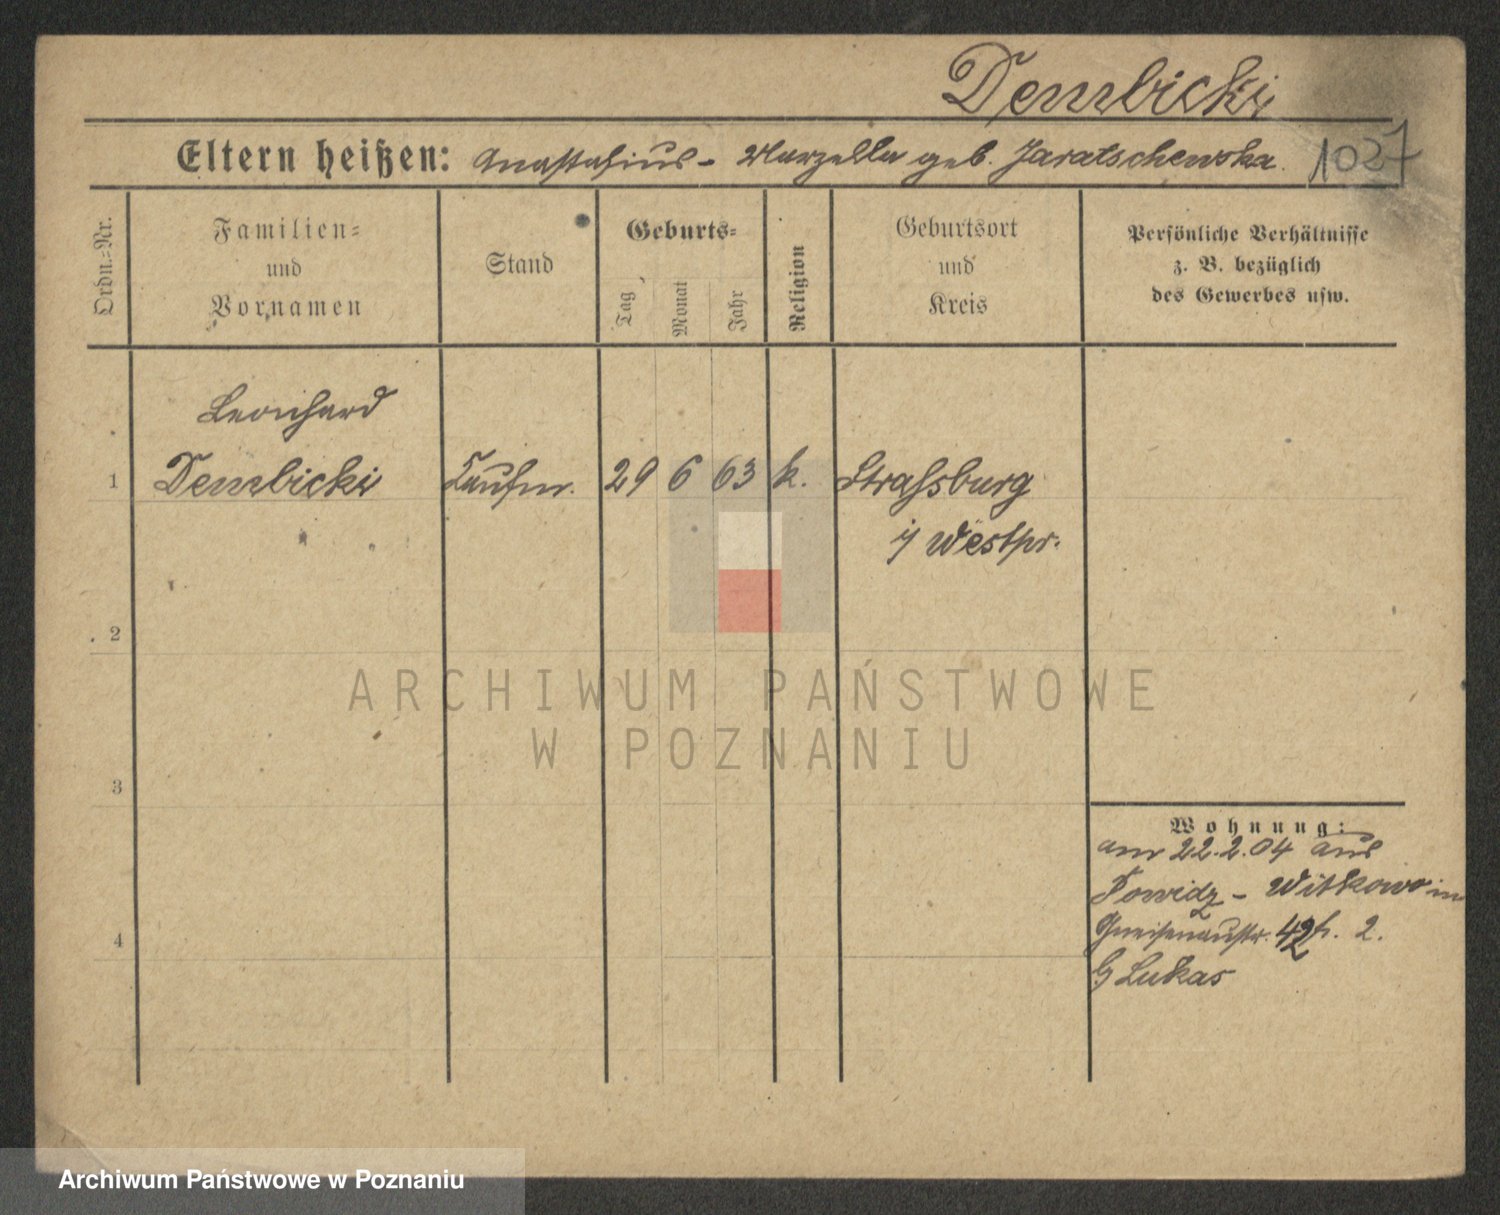 Dembicki
Eltern heißen: Anastasius - Marzella geb. Jaratschewska. 1027
Ordn.-Nr.
Familien- und Vornamen
Stand
Geburts-
Tag Monat Jahr
Religion
Geburtsort und Kreis
Persönliche Verhältnisse
z. B. bezüglich
des Gewerbes usw.
Leonhard
1 Dembicki Kaufm. 29 6 63 k. Strassburg
i/ Westpr.
2
ARCHIWUM PAŃSTWOWE
W POZNANIU
3
Wohnung:
am 22.2.04 aus
Powidz - Witkowo in
Gneisenaustr. 42 2.
b/ Lukas
4
Archiwum Państwowe w Poznaniu